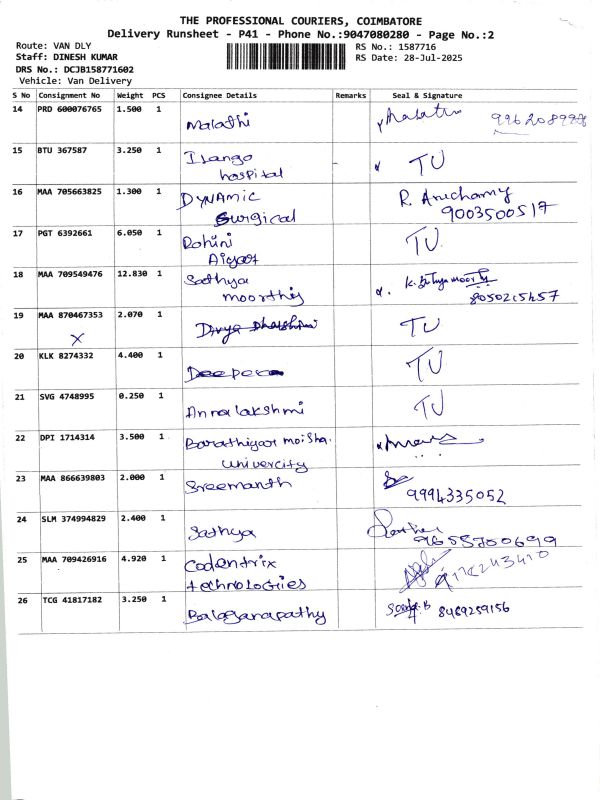 THE PROFESSIONAL COURIERS, COIMBATORE
Delivery Runsheet - P41 - Phone No.:9047080280 - Page No.:2
Route: VAN DLY RS No.: 1587716
Staff: DINESH KUMAR RS Date: 28-Jul-2025
DRS No.: DCJB158771602
Vehicle: Van Delivery
S No Consignment No Weight PCS Consignee Details Remarks Seal & Signature
14 PRD 600076765 1.500 1 Malathi Malathi
15 BTU 367587 3.250 1 Ilango - TU
hospital
16 MAA 705663825 1.300 1 DYNAMIC R. Aruchamy
Surgical 9003500517
17 PGT 6392661 6.050 1 Rohini TU
18 MAA 709549476 12.830 1 Sathya
moorthy
19 MAA 870467353 2.070 1 TU
X
20 KLK 8274332 4.400 1 Deepa TU
21 SVG 4748995 0.250 1 Annalakshmi TU
22 DPI 1714314 3.500 1 Barathiyar
univercity
23 MAA 866639803 2.000 1 Sreemanth
9994335052
24 SLM 374994829 2.400 1 Sathya
9655700699
25 MAA 709426916 4.920 1 Codentrix
technologies
26 TCG 41817182 3.250 1 Balaganapathy 8489259156